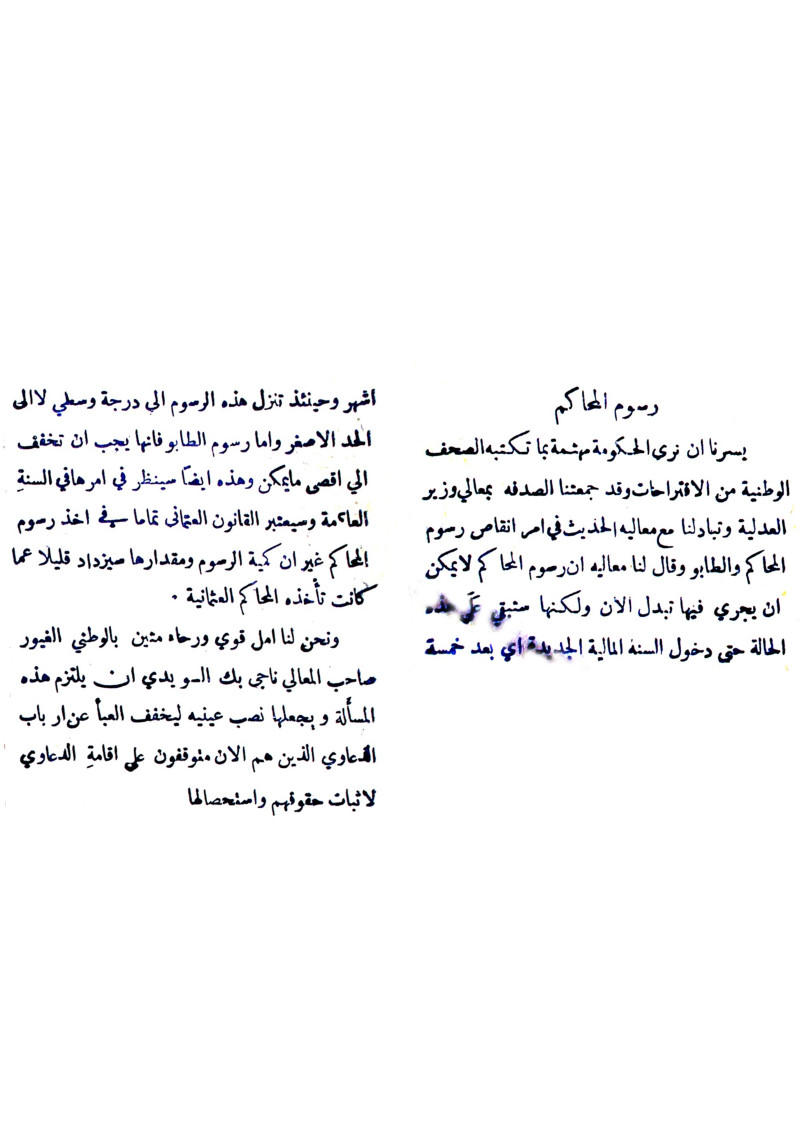 رسوم المحاكم
يسرنا ان نرى الحكومة مهتمة بما تكتبه الصحف
الوطنية من الاقتراحات وقد جمعتنا الصدفه بمعالي وزير
العدلية وتبادلنا مع معاليه الحديث في امر انقاص رسوم
المحاكم والطابو وقال لنا معاليه ان رسوم المحاكم لايمكن
ان يجري فيها تبدل الآن ولكنها ستبقي على هذه
الحالة حتى دخول السنه المالية الجديدة اي بعد خمسة
أشهر وحينئذ تنزل هذه الرسوم الي درجة وسطي لاالى
الحد الاصغر واما رسوم الطابو فانها يجب ان تخفف
الي اقصى مايمكن وهذه ايضاً سينظر في امرها في السنةِ
القائمة وسيعتبر القانون العثمانى تماما في اخذ رسوم
المحاكم غير ان كمية الرسوم ومقدارها سيزداد قليلا عما
كانت تأخذه المحاكم العثمانية ٠
ونحن لنا امل قوي ورجاء متين بالوطني الغيور
صاحب المعالي ناجى بك السويدي ان يلتزم هذه
المسألة ويجعلها نصب عينيه ليخفف العبأ عن ارباب
الدعاوي الذين هم الان متوقفون على اقامةِ الدعاوي
لاثبات حقوقهم واستحصالها